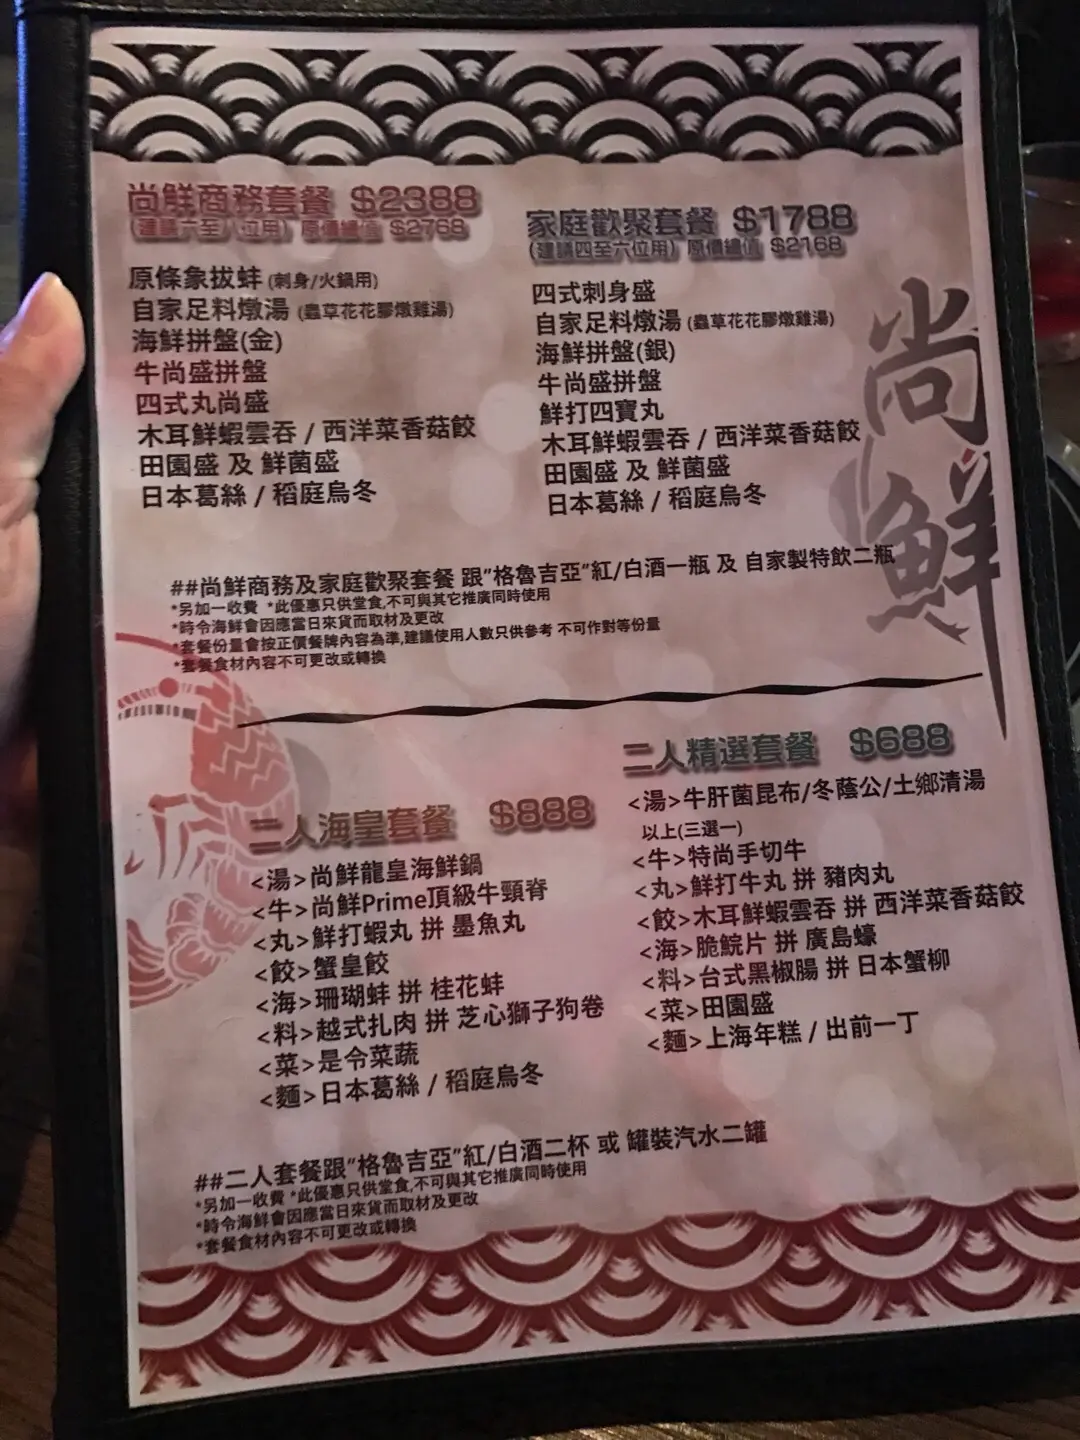 尚鮮商務套餐 $2388
(建議六至八位用) 原價總值 $2768
原條象拔蚌 (刺身/火鍋用)
自家足料燉湯 (蟲草花花膠燉雞湯)
海鮮拼盤(金)
牛尚盛拼盤
四式丸尚盛
木耳鮮蝦雲吞 / 西洋菜香菇餃
田園盛 及 鮮菌盛
日本葛絲 / 稻庭烏冬
家庭歡聚套餐 $1788
(建議四至六位用) 原價總值 $2168
四式刺身盛
自家足料燉湯 (蟲草花花膠燉雞湯)
海鮮拼盤(銀)
牛尚盛拼盤
鮮打四寶丸
木耳鮮蝦雲吞 / 西洋菜香菇餃
田園盛 及 鮮菌盛
日本葛絲 / 稻庭烏冬
尚鮮
##尚鮮商務及家庭歡聚套餐 跟"格魯吉亞"紅/白酒一瓶 及 自家製特飲二瓶
*另加一收費 *此優惠只供堂食,不可與其它推廣同時使用
*時令海鮮會因應當日來貨而取材及更改
*套餐份量會按正價餐牌內容為準,建議使用人數只供參考 不可作對等份量
*套餐食材內容不可更改或轉換
二人海皇套餐 $888
<湯>尚鮮龍皇海鮮鍋
<牛>尚鮮Prime頂級牛頸脊
<丸>鮮打蝦丸 拼 墨魚丸
<餃>蟹皇餃
<海>珊瑚蚌 拼 桂花蚌
<料>越式扎肉 拼 芝心獅子狗卷
<菜>是令菜蔬
<麵>日本葛絲 / 稻庭烏冬
二人精選套餐 $688
<湯>牛肝菌昆布/冬蔭公/土鄉清湯
以上(三選一)
<牛>特尚手切牛
<丸>鮮打牛丸 拼 豬肉丸
<餃>木耳鮮蝦雲吞 拼 西洋菜香菇餃
<海>脆鯇片 拼 廣島蠔
<料>台式黑椒腸 拼 日本蟹柳
<菜>田園盛
<麵>上海年糕 / 出前一丁
##二人套餐跟"格魯吉亞"紅/白酒二杯 或 罐裝汽水二罐
*另加一收費 *此優惠只供堂食,不可與其它推廣同時使用
*時令海鮮會因應當日來貨而取材及更改
*套餐食材內容不可更改或轉換